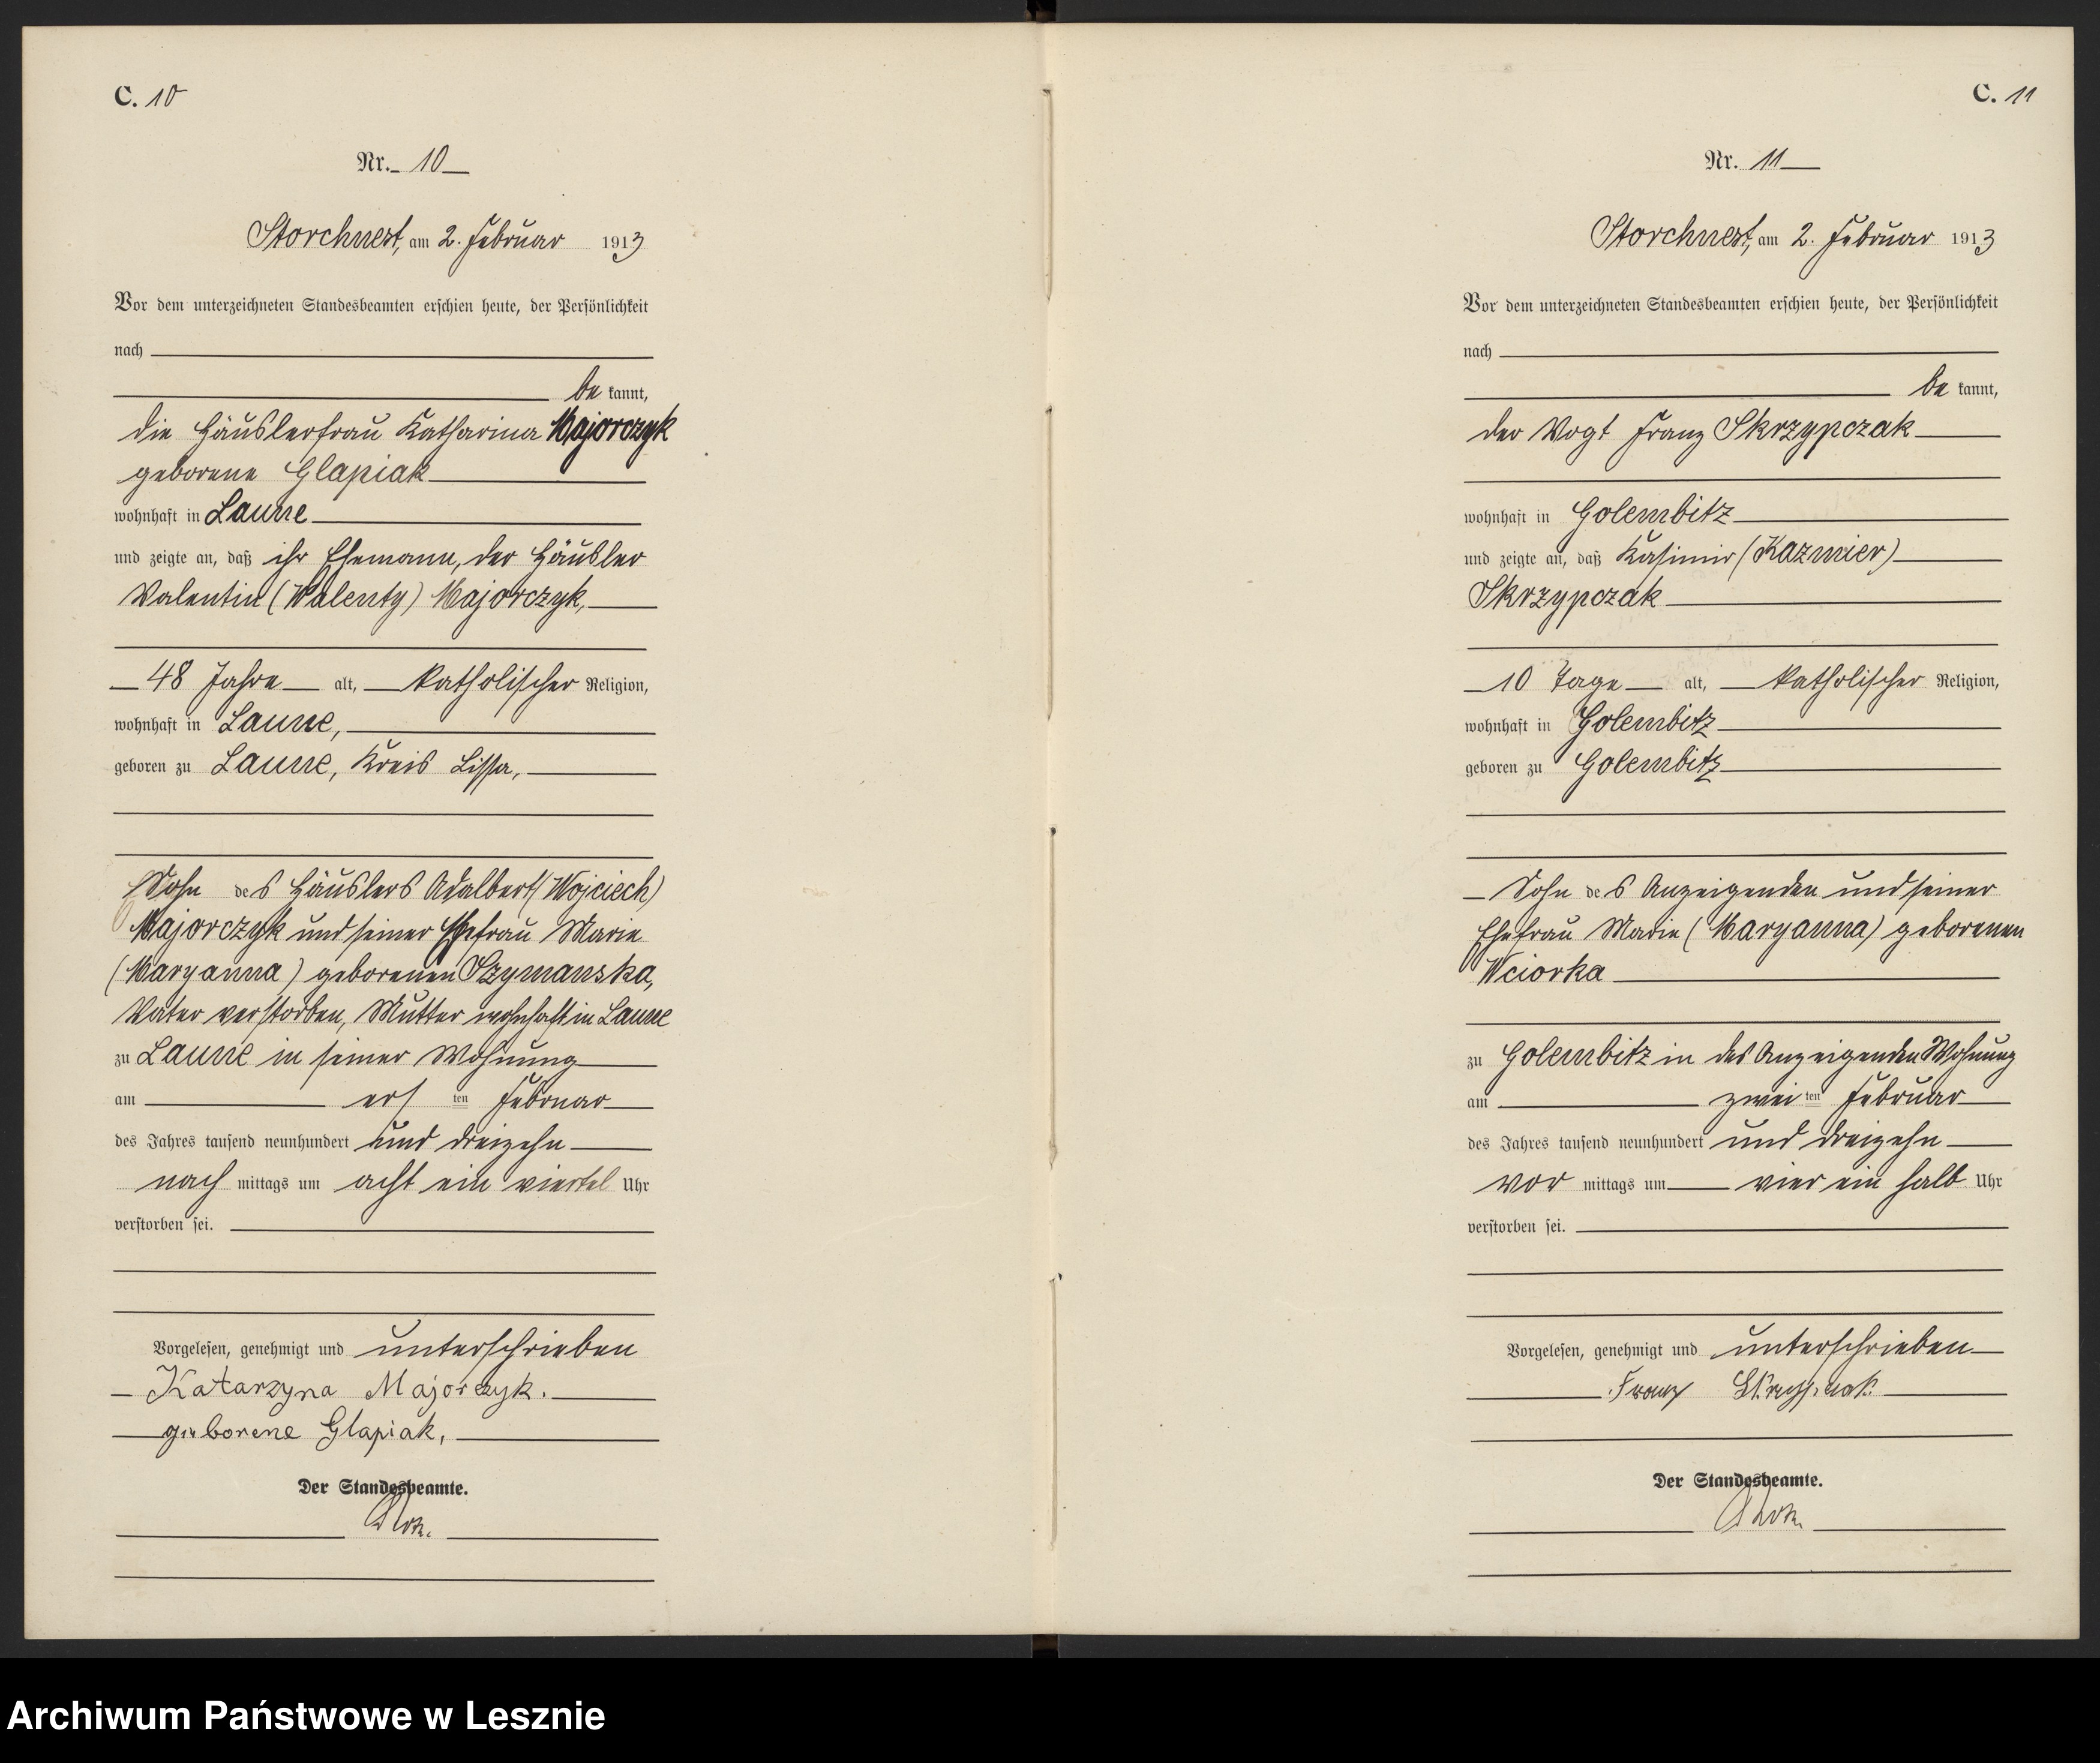 C. 10
Nr. 10
Storchnest, am 2. Februar 1913
Vor dem unterzeichneten Standesbeamten erschien heute, der Persönlichkeit
nach
be kannt,
die Häuslerfrau Katharina Majorczyk
geborene Glapiak
wohnhaft in Laune
und zeigte an, daß ihr Ehemann, der Häusler
Valentin (Walenty) Majorczyk,
48 Jahre alt, katholischer Religion,
wohnhaft in Laune,
geboren zu Laune, Kreis Lissa,
Sohn des Häuslers Adalbert (Wojciech)
Majorczyk und seiner Ehefrau Marie
(Maryanna) geborenen Szymanska,
Vater verstorben, Mutter wohnhaft in Laune
zu Laune in seiner Wohnung
am ersten Februar
des Jahres tausend neunhundert und dreizehn
nach mittags um acht ein viertel Uhr
verstorben sei.
Vorgelesen, genehmigt und unterschrieben
Katarzyna Majorczyk.
geborene Glapiak,
Der Standesbeamte.
C. 11
Nr. 11
Storchnest, am 2. Februar 1913
Vor dem unterzeichneten Standesbeamten erschien heute, der Persönlichkeit
nach
be kannt,
der Vogt Franz Skrzypczak
wohnhaft in Golembitz
und zeigte an, daß Kasimir (Kazmier)
Skrzypczak
10 Tage alt, katholischer Religion,
wohnhaft in Golembitz
geboren zu Golembitz
Sohn des Anzeigenden und seiner
Ehefrau Marie (Maryanna) geborenen
Wciorka
zu Golembitz in des Anzeigenden Wohnung
am zweiten Februar
des Jahres tausend neunhundert und dreizehn
vor mittags um vier ein halb Uhr
verstorben sei.
Vorgelesen, genehmigt und unterschrieben
Franz Skrzypczak
Der Standesbeamte.
Archiwum Państwowe w Lesznie